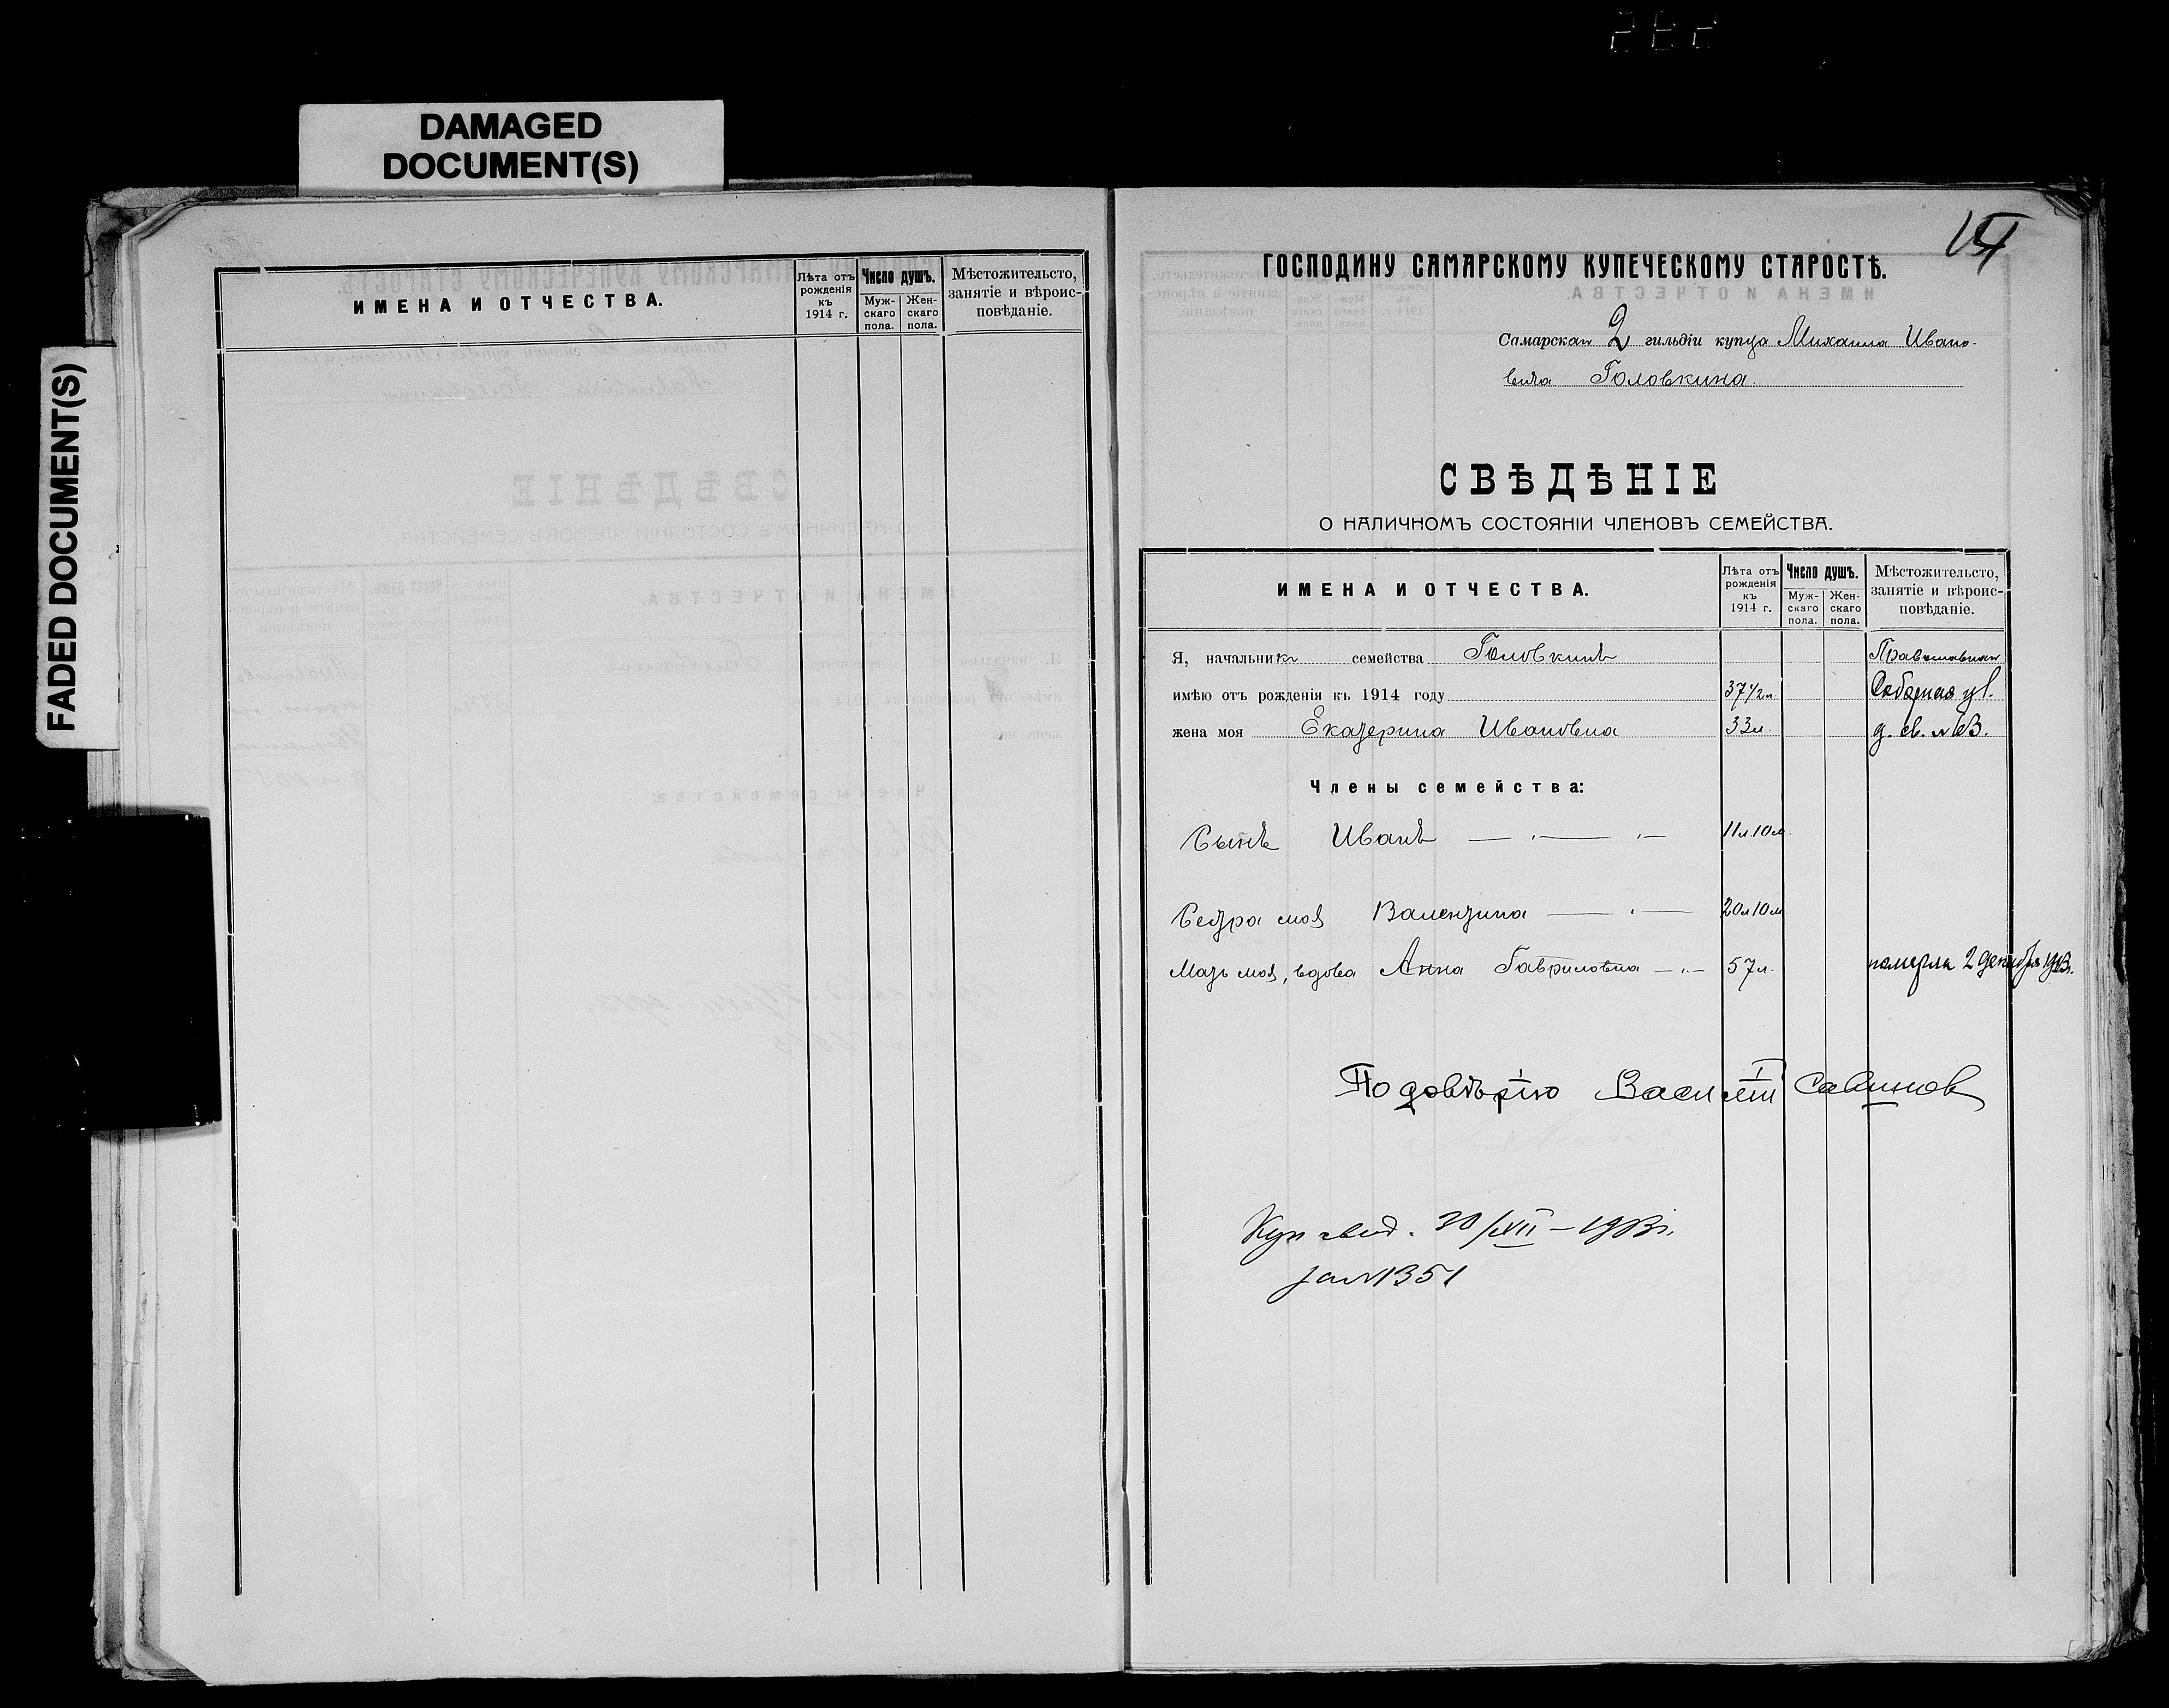 DAMAGED
DOCUMENT(S)
FADED DOCUMENT(S)
ИМЕНА И ОТЧЕСТВА.
Лѣта отъ рожденія къ 1914 г.
Число душъ.
Муж-скаго пола.
Жен-скаго пола.
Мѣстожительсто, занятіе и вѣроис-повѣданіе.
ГОСПОДИНУ САМАРСКОМУ КУПЕЧЕСКОМУ СТАРОСТѢ.
Самарскаго 2 гильдіи купца Михаила Ивано-
вича Головкина.
СВѢДѢНІЕ
О НАЛИЧНОМЪ СОСТОЯНІИ ЧЛЕНОВЪ СЕМЕЙСТВА.
ИМЕНА И ОТЧЕСТВА.
Лѣта отъ рожденія къ 1914 г.
Число душъ.
Муж-скаго пола.
Жен-скаго пола.
Мѣстожительсто, занятіе и вѣроис-повѣданіе.
Я, начальникъ семейства Головкинъ
имѣю отъ рожденія къ 1914 году 37 1/2 л. Соборная ул.
жена моя Екатерина Ивановна 33 л. д. св. №
Члены семейства:
Сынъ Иванъ — „ — „ — 11 л. 10 м.
Сестра моя Валентина — „ — 20 л 10 м
Мать моя, вдова Анна Гавриловна — „ — 57 л. померла 2 декабря 1913 г.
По довѣрію Василій Савинов
Куп свид. 30/XII – 1913 г.
за № 1351